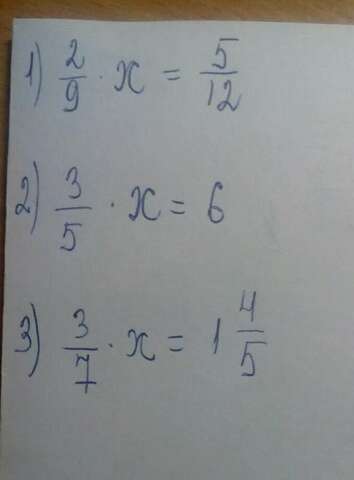 1) 2/9 · x = 5/12
2) 3/5 · x = 6
3) 3/7 · x = 1 4/5